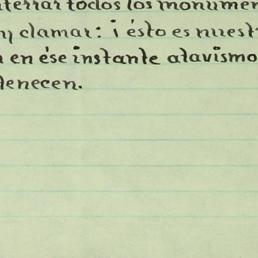 terrar todos los monumen
y clamar: ¡ésto es nuest
en ése instante atavismo
tenecen.